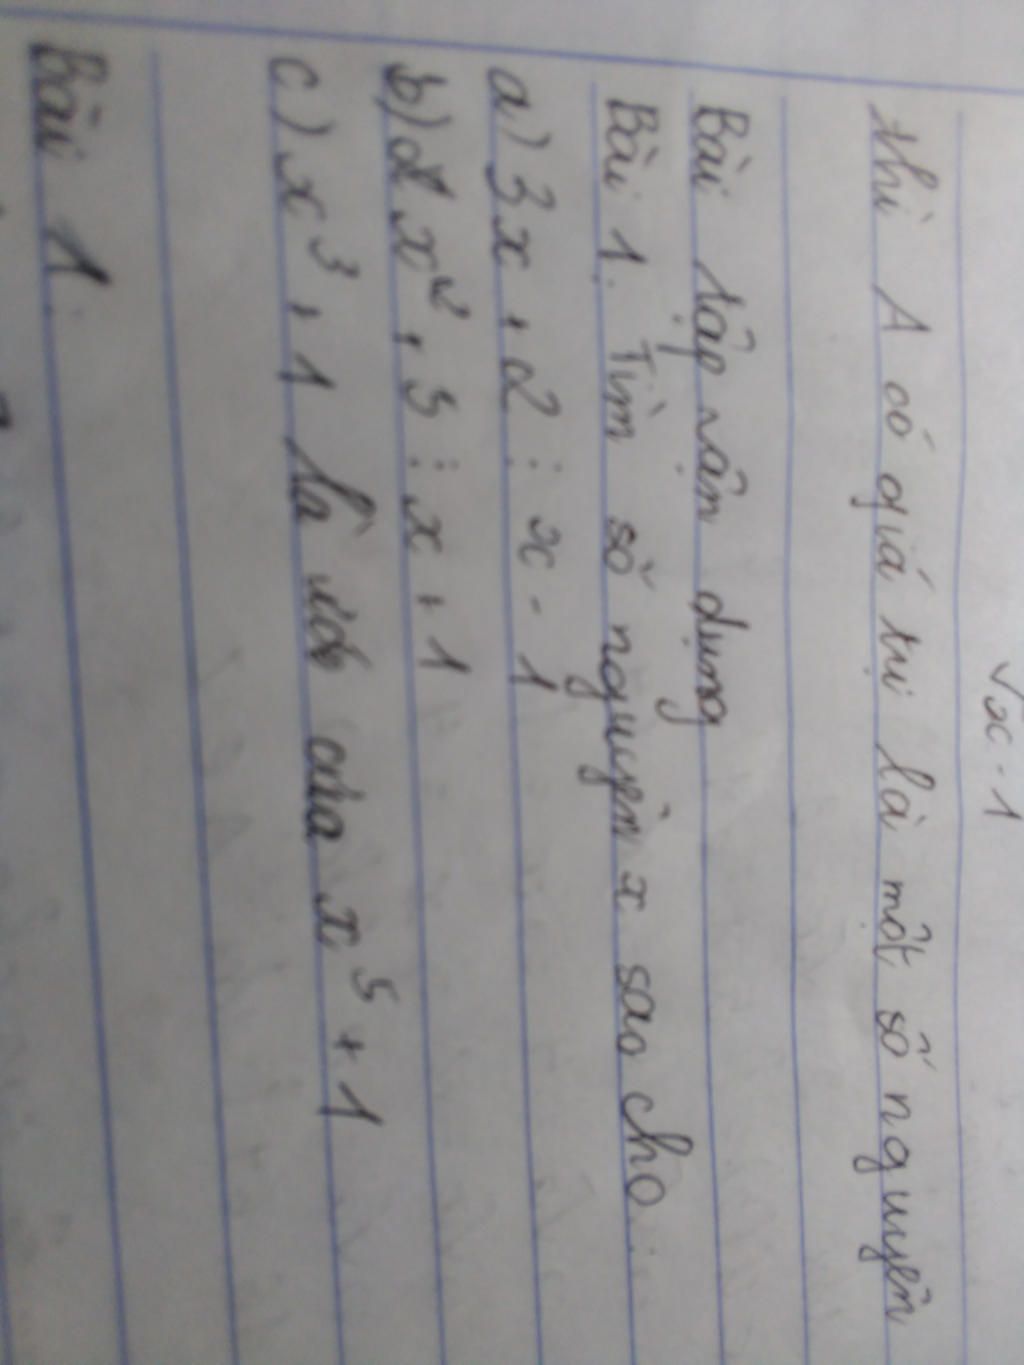 √x - 1
thì A có giá trị là một số nguyên
Bài tập vận dụng
Bài 1. Tìm số nguyên x sao cho
a) 3x + 2 ⋮ x - 1
b) 2x² + 5 ⋮ x + 1
c) x³ + 1 là ước của x⁵ + 1
Bài 1.